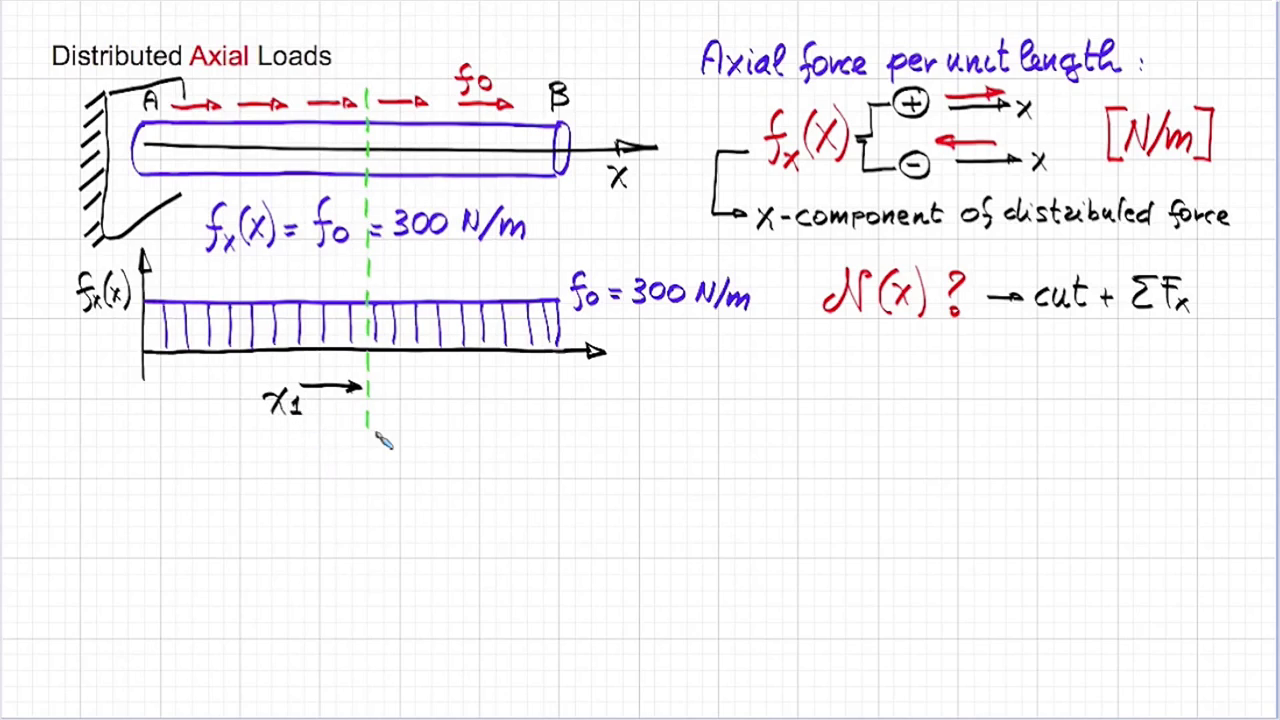 Distributed Axial Loads
A f₀ B
x
fₓ(x) = f₀ = 300 N/m
fₓ(x)
f₀ = 300 N/m
x₁
Axial force per unit length :
fₓ(x) + x [N/m]
- x
x-component of distributed force
N(x) ? → cut + ΣFₓ